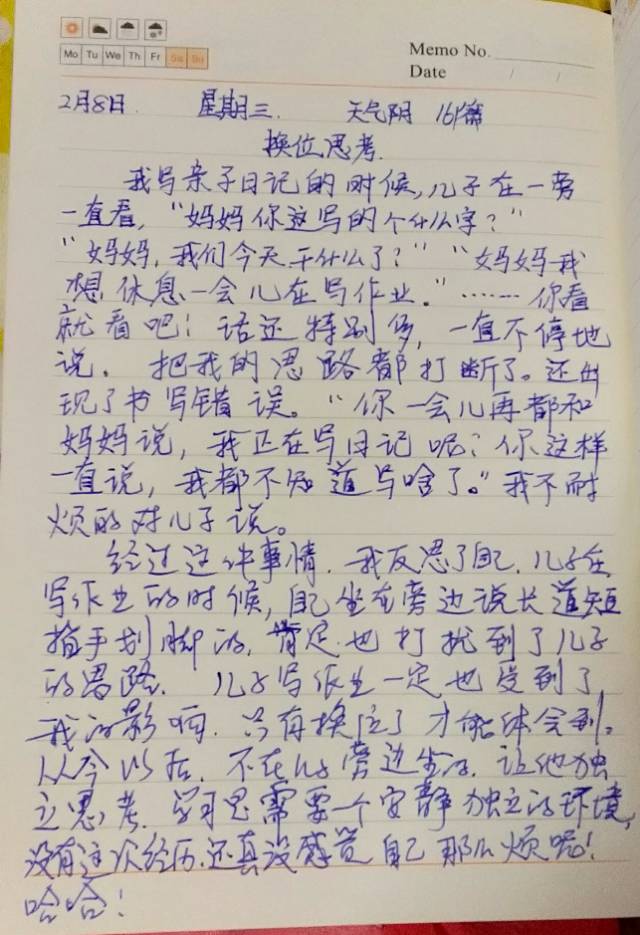 Mo Tu We Th Fr Sa Su
Memo No.
Date / /
2月8日. 星期三. 天气阴 161篇
换位思考.
我写亲子日记的时候,儿子在一旁
一直看,“妈妈你这写的个什么字?”
“妈妈,我们今天干什么了?”“妈妈我
想休息一会儿在写作业。”……你看
就看吧!话还特别多,一直不停地
说.把我的思路都打断了。还出
现了书写错误。“你一会儿再都和
妈妈说,我正在写日记呢?你这样
一直说,我都不知道写啥了。”我不耐
烦的对儿子说。
经过这件事情.我反思了自己.儿子在
写作业的时候,自己坐在旁边说长道短
指手划脚的,肯定也打扰到了儿子
的思路.儿子写作业一定也受到了
我的影响.只有换位了才能体会到。
从今以后.不在儿子旁边.让他独
立思考.学习思需要一个安静独立的环境,
没有这次经历.还真没感觉自己那么烦呢!
哈哈!